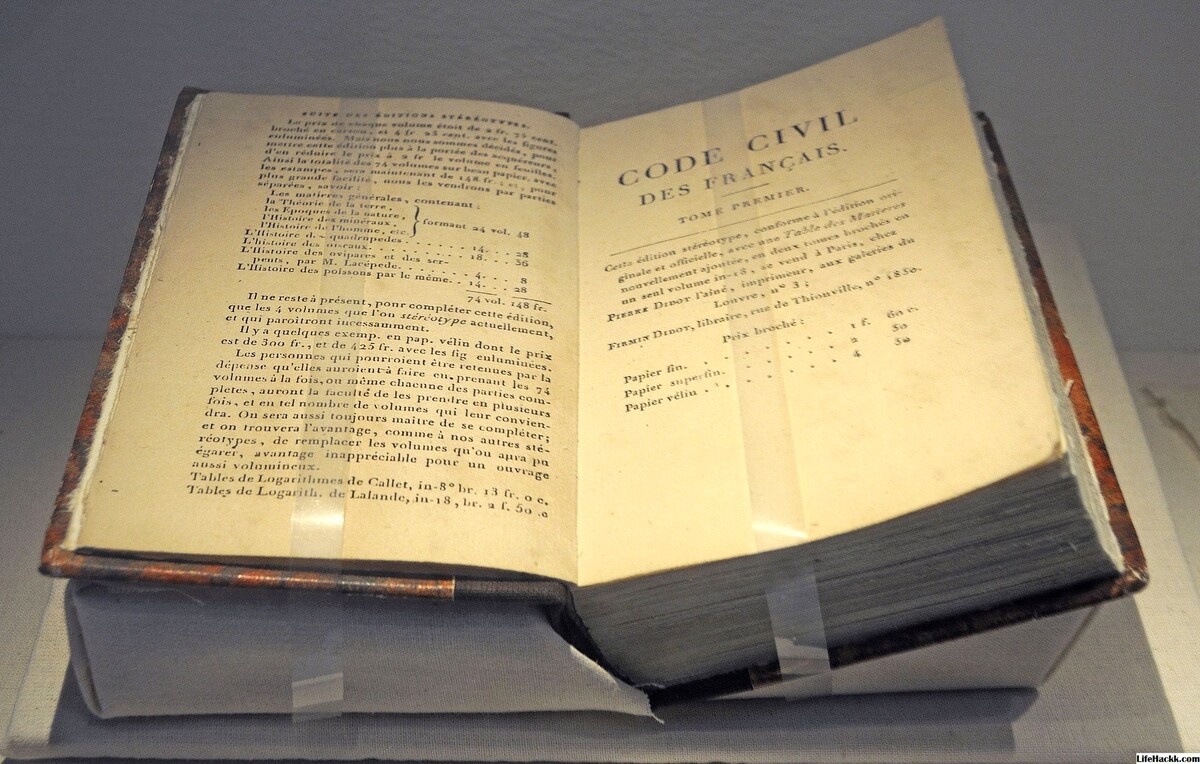 SUITE DES ÉDITIONS STÉRÉOTYPES.
Le prix de chaque volume étoit de 2 fr. 75 cent.
broché en carton, et 4 fr 25 cent. avec les figures
enluminées. Mais nous nous sommes décidés, pour
mettre cette édition plus à la portée des acquéreurs,
d'en réduire le prix à 2 fr le volume en feuilles.
Ainsi la totalité des 74 volumes sur beau papier, avec
les estampes, sera maintenant de 148 fr. ; et, pour
plus grande facilité, nous les vendrons par parties
séparées, savoir :
Les matières générales, contenant :
la Théorie de la terre,
les Époques de la nature,
l'Histoire des minéraux,
l'Histoire de l'homme, etc.
formant 24 vol. 48
L'Histoire des quadrupedes. . . . . . . 14. . . 28
L'histoire des oiseaux. . . . . . . . 18. . . . 36
L'Histoire des ovipares et des ser-
pents, par M. Lacépède. . . . . . . 4. . . 8
L'Histoire des poissons par le même. . 14. . . 28
74 vol. 148 fr.
Il ne reste à présent, pour compléter cette édition,
que les 4 volumes que l'on stéréotype actuellement,
et qui paroîtront incessamment.
Il y a quelques exemp. en pap. vélin dont le prix
est de 300 fr., et de 425 fr. avec les fig enluminées.
Les personnes qui pourroient être retenues par la
dépense qu'elles auroient à faire en prenant les 74
volumes à la fois, ou même chacune des parties com-
pletes, auront la faculté de les prendre en plusieurs
fois, et en tel nombre de volumes qui leur convien-
dra. On sera aussi toujours maître de se compléter;
et on trouvera l'avantage, comme à nos autres sté-
réotypes, de remplacer les volumes qu'on aura pu
égarer, avantage inappréciable pour un ouvrage
aussi volumineux.
Tables de Logarithmes de Callet, in-8° br. 13 fr. 0 c.
Tables de Logarith. de Lalande, in-18, br. 2 f. 50 c
CODE CIVIL
DES FRANÇAIS.
TOME PREMIER.
Cette édition stéréotype, conforme à l'édition ori-
ginale et officielle, avec une Table des Matieres
nouvellement ajoutée, en deux tomes brochés en
un seul volume in-18, se vend à Paris, chez
PIERRE DIDOT l'aîné, imprimeur, aux galeries du
Louvre, n° 3 ;
FIRMIN DIDOT, libraire, rue de Thionville, n° 1850.
Prix broché :
Papier fin. . . . . . . . 1 f. 60 c.
Papier superfin. . . . . . . 2 50
Papier vélin . . . . . . . 4 50
LifeHackk.com